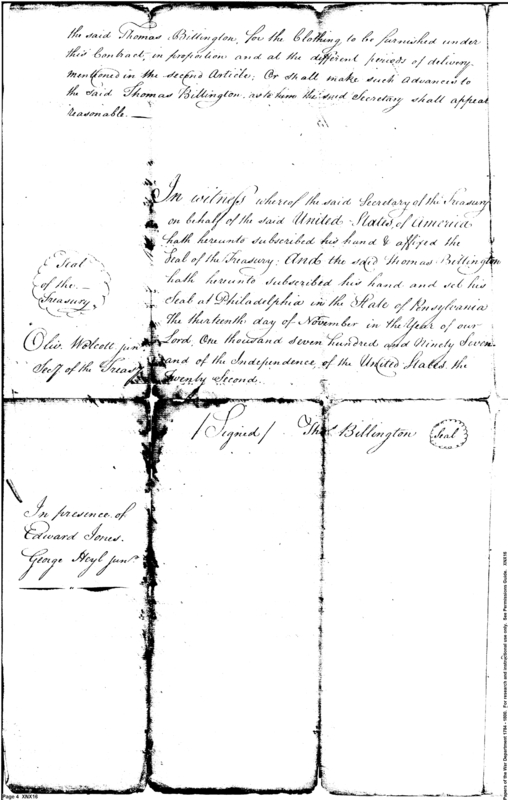 the said Thomas Billington, for the Clothing to be furnished under
this Contract, in proportion and at the different periods of delivery
mentioned in the second Article; Or shall make such Advances to
the said Thomas Billington, as to him the said Secretary shall appear
reasonable. —
In witness whereof the said Secretary of the Treasury
on behalf of the said United States of America
hath hereunto subscribed his hand & affixed the
Seal of the Treasury: And the said Thomas Billington
hath hereunto subscribed his hand and set his
Seal at Philadelphia in the State of Pensylvania
the thirteenth day of November in the Year of our
Lord, One thousand seven hundred and Ninety Seven
and of the Independence of the United States the
Twenty Second.
Seal
of the
Treasury
Oliv. Wolcott jun
Secy of the Treasy
/Signed/ Thos. Billington
Seal
In presence of
Edward Jones.
George Heyl junr.
Page 4 XNX16
Papers of the War Department 1784 - 1800. For research and instructional use only. See Permissions Guide. XNX16